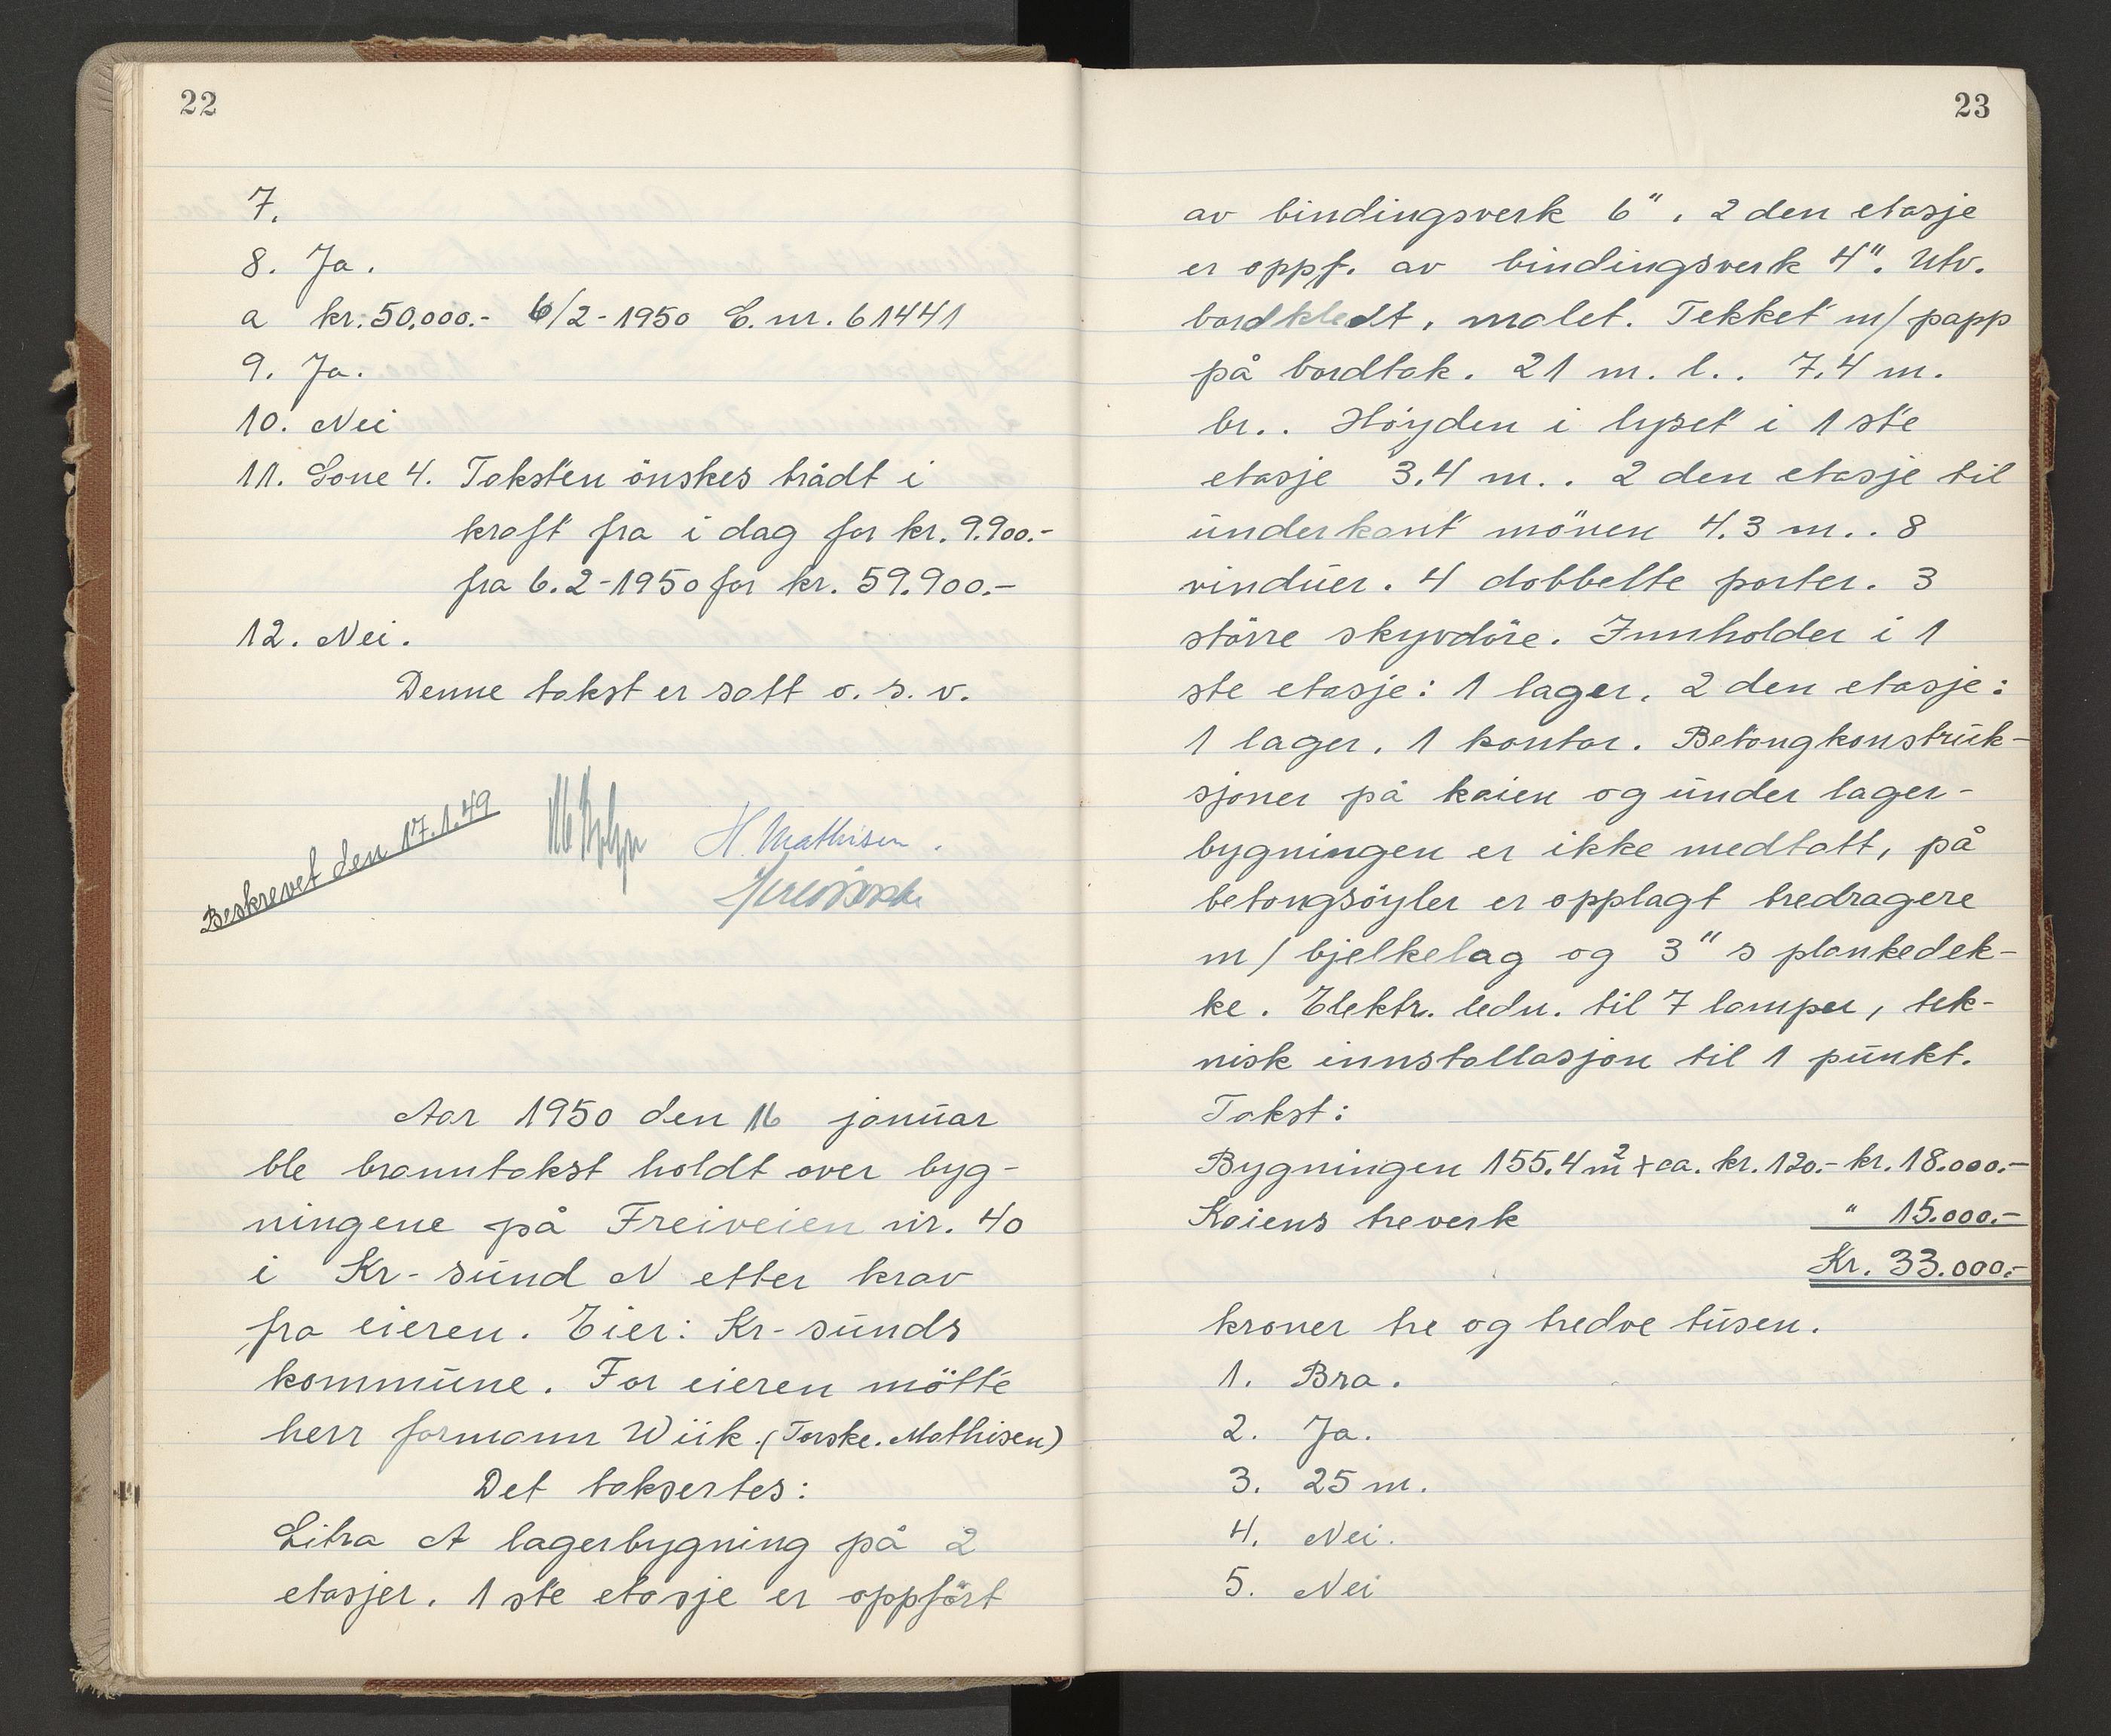 22
7.
8. Ja.
a kr. 50,000.- 6/2-1950 C. nr. 61441
9. Ja.
10. Nei
11. Sone 4. Taksten önskes trådt i
kraft fra i dag for kr. 9.900.-
fra 6.2-1950 for kr. 59.900.-
12. Nei.
Denne takst er satt o. s. v.
Beskrevet den 17.1.49
H. Mathisen.
Aar 1950 den 16 januar
ble branntakst holdt over byg-
ningene på Freiveien nr. 40
i Kr-sund N etter krav
fra eieren. Eier: Kr-sunds
kommune. For eieren mötte
herr formann Wiik. (Torske. Mathisen)
Det taksertes:
Litra A lagerbygning på 2
etasjer. 1 ste etasje er oppfört
23
av bindingsverk 6". 2 den etasje
er oppf. av bindingsverk 4". Utv.
bordkledt, malet. Tekket m/ papp
på bordtak. 21 m. l.. 7.4 m.
br.. Höyden i lyset i 1 ste
etasje 3.4 m.. 2 den etasje til
underkant mönen 4.3 m.. 8
vinduer. 4 dobbelte porter. 3
större skyvdöre. Innholder i 1
ste etasje: 1 lager, 2 den etasje:
1 lager, 1 kontor. Betongkonstruk-
sjoner på kaien og under lager-
bygningen er ikke medtatt, på
betongsöyler er opplagt tredragere
m/ bjelkelag og 3" s plankedek-
ke. Elektr. ledn. til 7 lamper, tek-
nisk innstallasjon til 1 punkt.
Takst:
Bygningen 155.4 m² + ca. kr. 120.- kr. 18.000.-
Kaiens treverk " 15.000.-
Kr. 33.000.-
kroner tre og tredve tusen.
1. Bra.
2. Ja.
3. 25 m.
4. Nei.
5. Nei